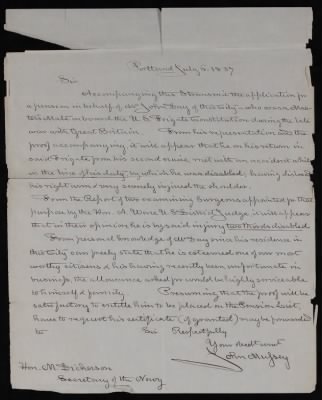 Portland July 5. 1837
Sir
Accompanying this I transmit the application for
a pension in behalf of Mr John Day of this City - who was a Mas-
ters Mate on board the U.S. Frigate Constitution during the late
war with Great Britain. From his representation and the
proof accompanying, it will appear that he on his return in
said Frigate from his second cruise, met with an accident while
in the line of his duty, by which he was disabled; having
his right arm & very severely injured the shoulder.
From the Report of two examining Surgeons appointed for that
purpose by the Hon. A. Ware U.S. District Judge, it will appear
that in their opinion he is by said injury two thirds disabled.
From personal knowledge of Mr Day since his residence in
this City I can freely state that he is esteemed one of our most
worthy citizens & his having recently been unfortunate in
business, the allowance asked for would be highly serviceable
to himself & family. Presuming that the proof will be
satisfactory to entitle him to be placed on the Pension List,
I have to request his certificate (if granted) may be forwarded
to Sir Respectfully
Your obedt servt
John Mussey
Hon. M. Dickerson
Secretary of the Navy